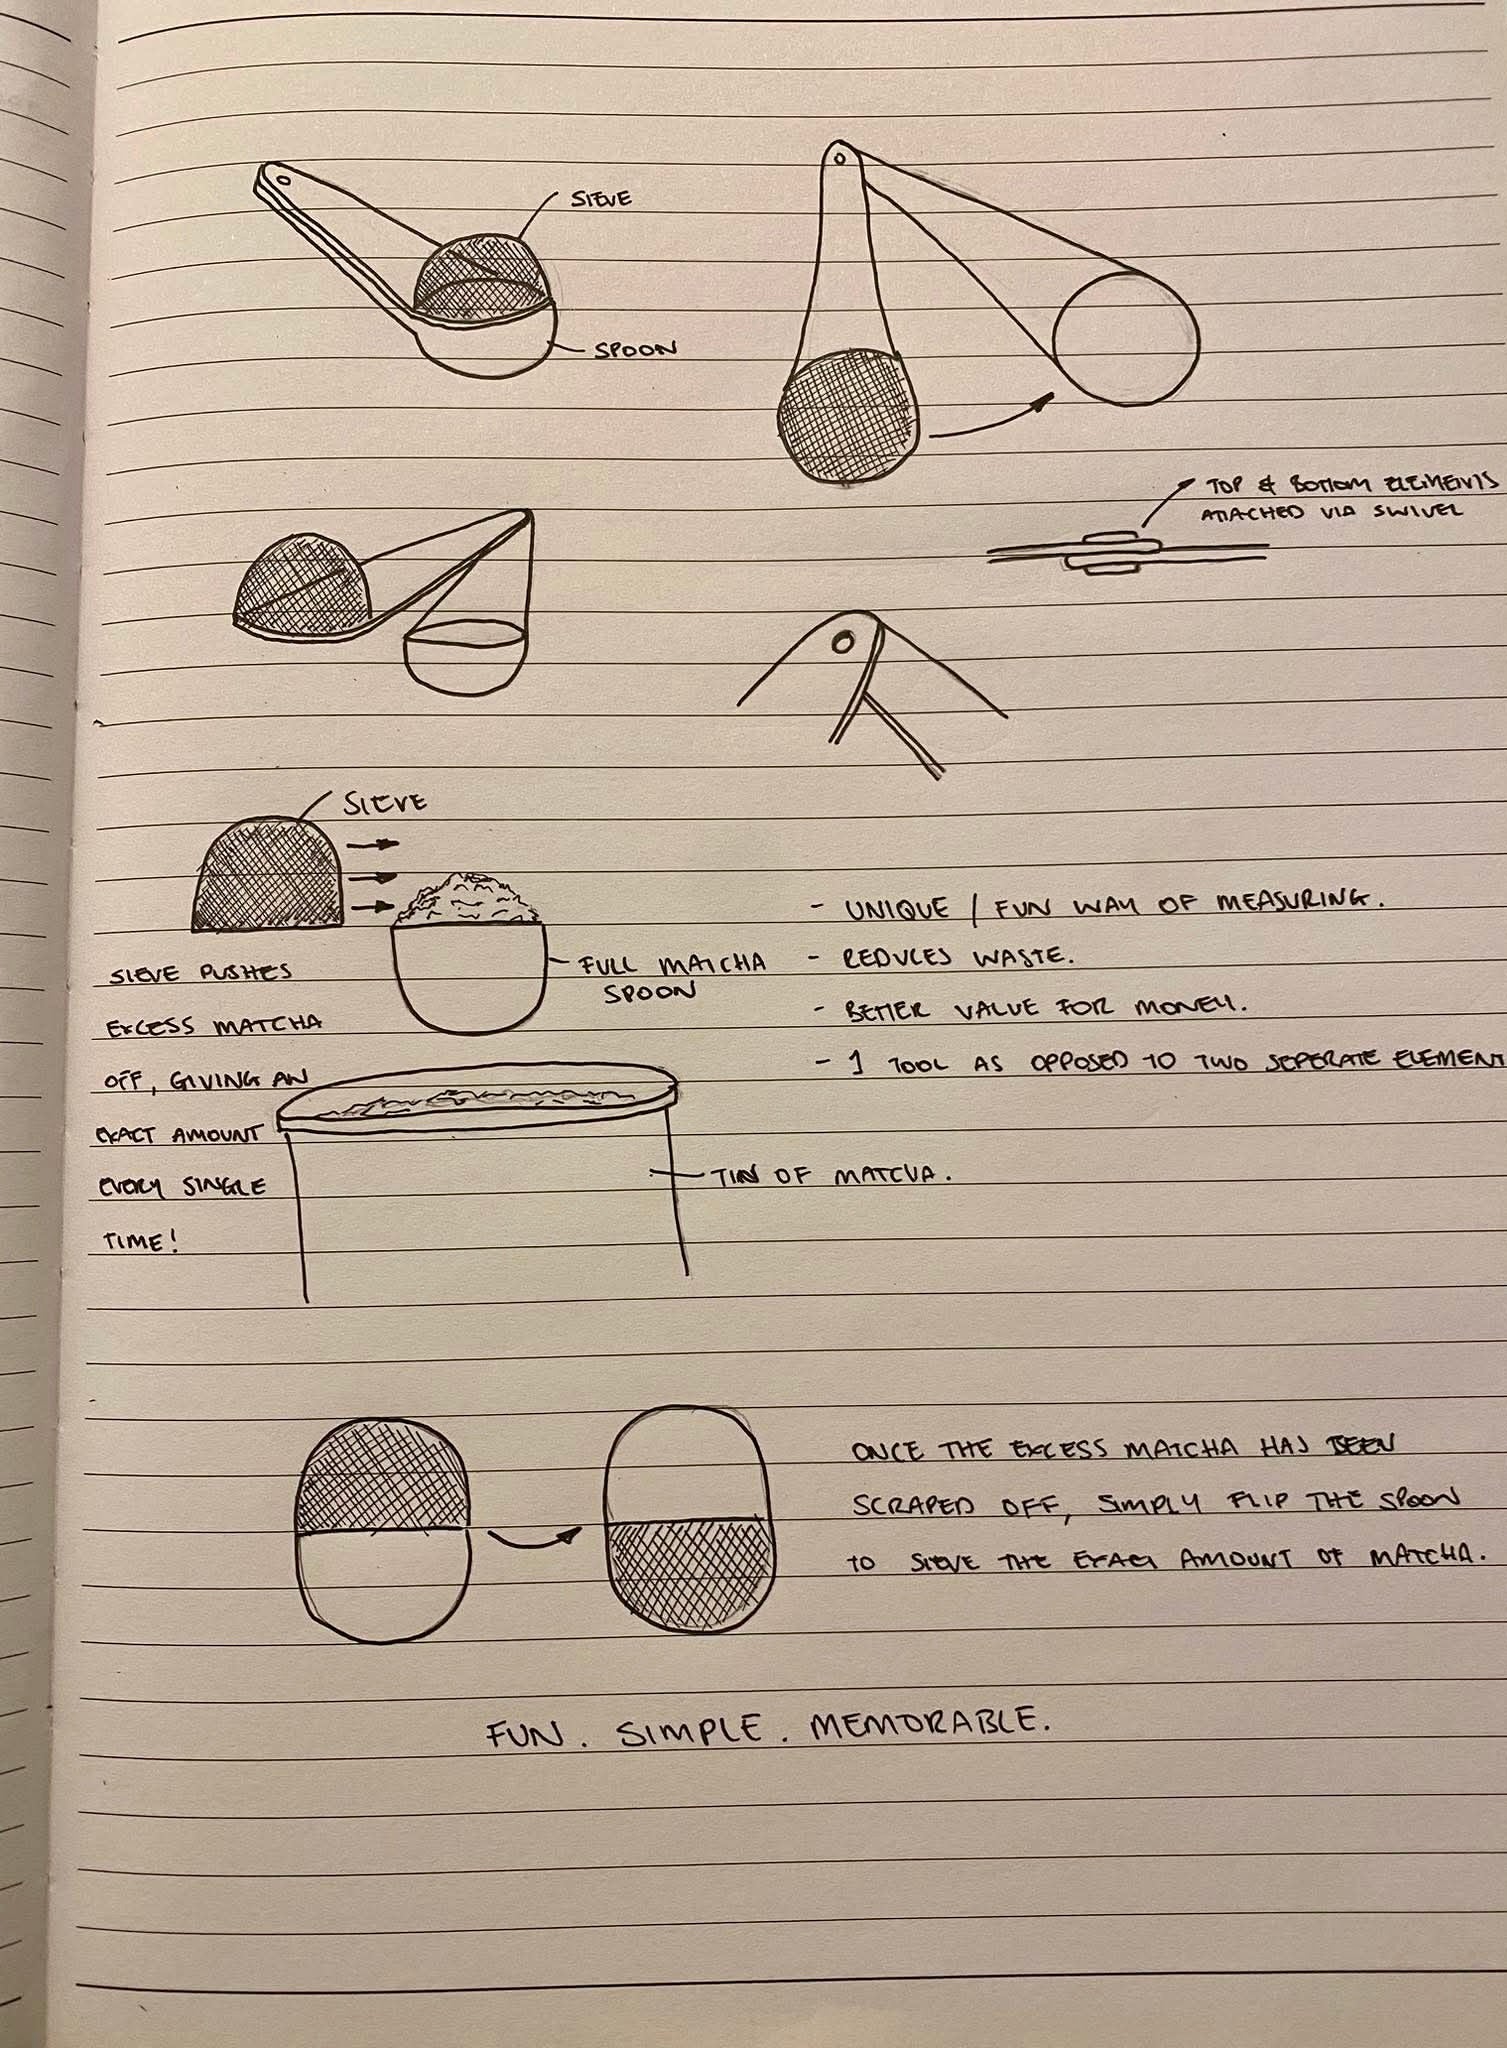 SIEVE
SPOON
TOP & BOTTOM ELEMENTS
ATTACHED VIA SWIVEL
SIEVE
SIEVE PUSHES
EXCESS MATCHA
OFF, GIVING AN
EXACT AMOUNT
EVERY SINGLE
TIME!
FULL MATCHA
SPOON
- UNIQUE / FUN WAY OF MEASURING.
- REDUCES WASTE.
- BETTER VALUE FOR MONEY.
- 1 TOOL AS OPPOSED TO TWO SEPERATE ELEMENT
TIN OF MATCHA.
ONCE THE EXCESS MATCHA HAS BEEN
SCRAPED OFF, SIMPLY FLIP THE SPOON
TO SIEVE THE EXACT AMOUNT OF MATCHA.
FUN. SIMPLE. MEMORABLE.